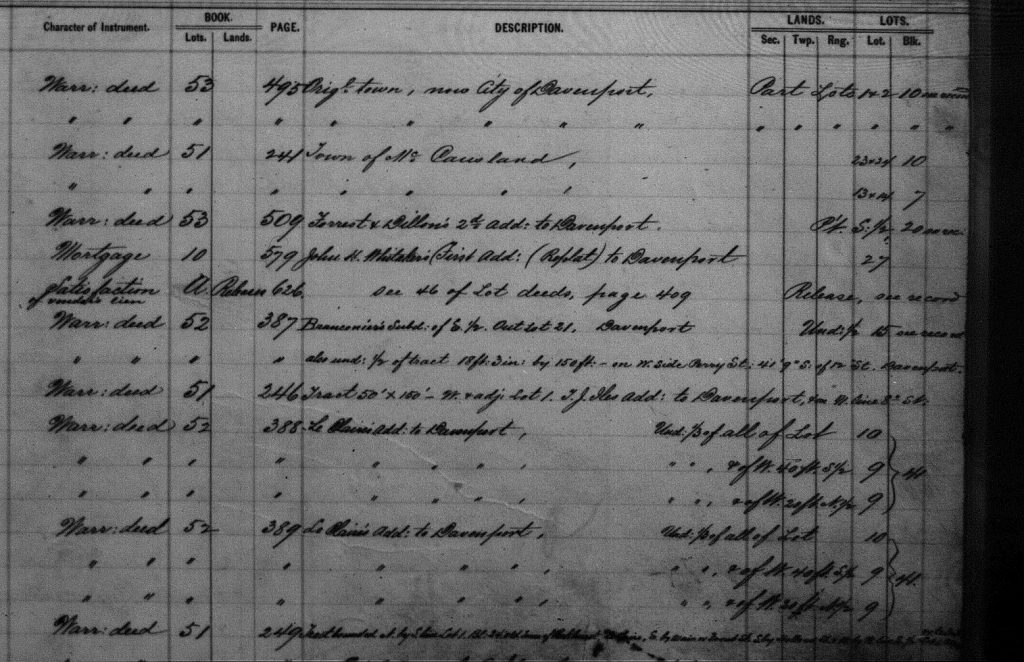 Character of Instrument. BOOK. PAGE. DESCRIPTION. LANDS. LOTS.
Lots. Lands. Sec. Twp. Rng. Lot. Blk.
Warr: deed 53 495 Orig: town, now City of Davenport, Part Lots 1 & 2 10 see record
" " " " " " " " " " " " " " "
Warr: deed 51 241 Town of Mc Causland, 23 & 24 10
" " " " " " " 13 & 14 7
Warr: deed 53 509 Forrest & Dillon's 2d Add: to Davenport. Pt. S. 1/2 20 see rec
Mortgage 10 579 John H. Whitaker's First Add: (Replat) to Davenport 27
Satisfaction of vendor's lien A Release 626 see 46 of Lot deeds, page 409 Release, see record
Warr: deed 52 387 Subd: of E. 1/2 Out Lot 21, Davenport Und: 1/2 15 see record
" " " " also und: 1/2 of tract 18 ft: 3 in: by 150 ft: - on W. Side Perry St: 41' 9" S. of St. Davenport.
Warr: deed 51 246 Tract 50' x 150' - W. & adj: Lot 1. Add: to Davenport, & on line 8th St.
Warr: deed 52 388 Le Claire's Add: to Davenport, Und: 1/3 of all of Lot 10
" " " " " " " " " " , & of W. 40 ft. S 1/2 9 44
" " " " " " " " " " , & of W. 20 ft. N. 1/2 9
Warr: deed 52 389 Le Claire's Add: to Davenport, Und: 1/3 of all of Lot 10
" " " " " " " " " " , & of W. 40 ft. S 1/2 9 44
" " " " " " " " " " , & of W. 20 ft. N. 1/2 9
Warr: deed 51 249 Tract bounded